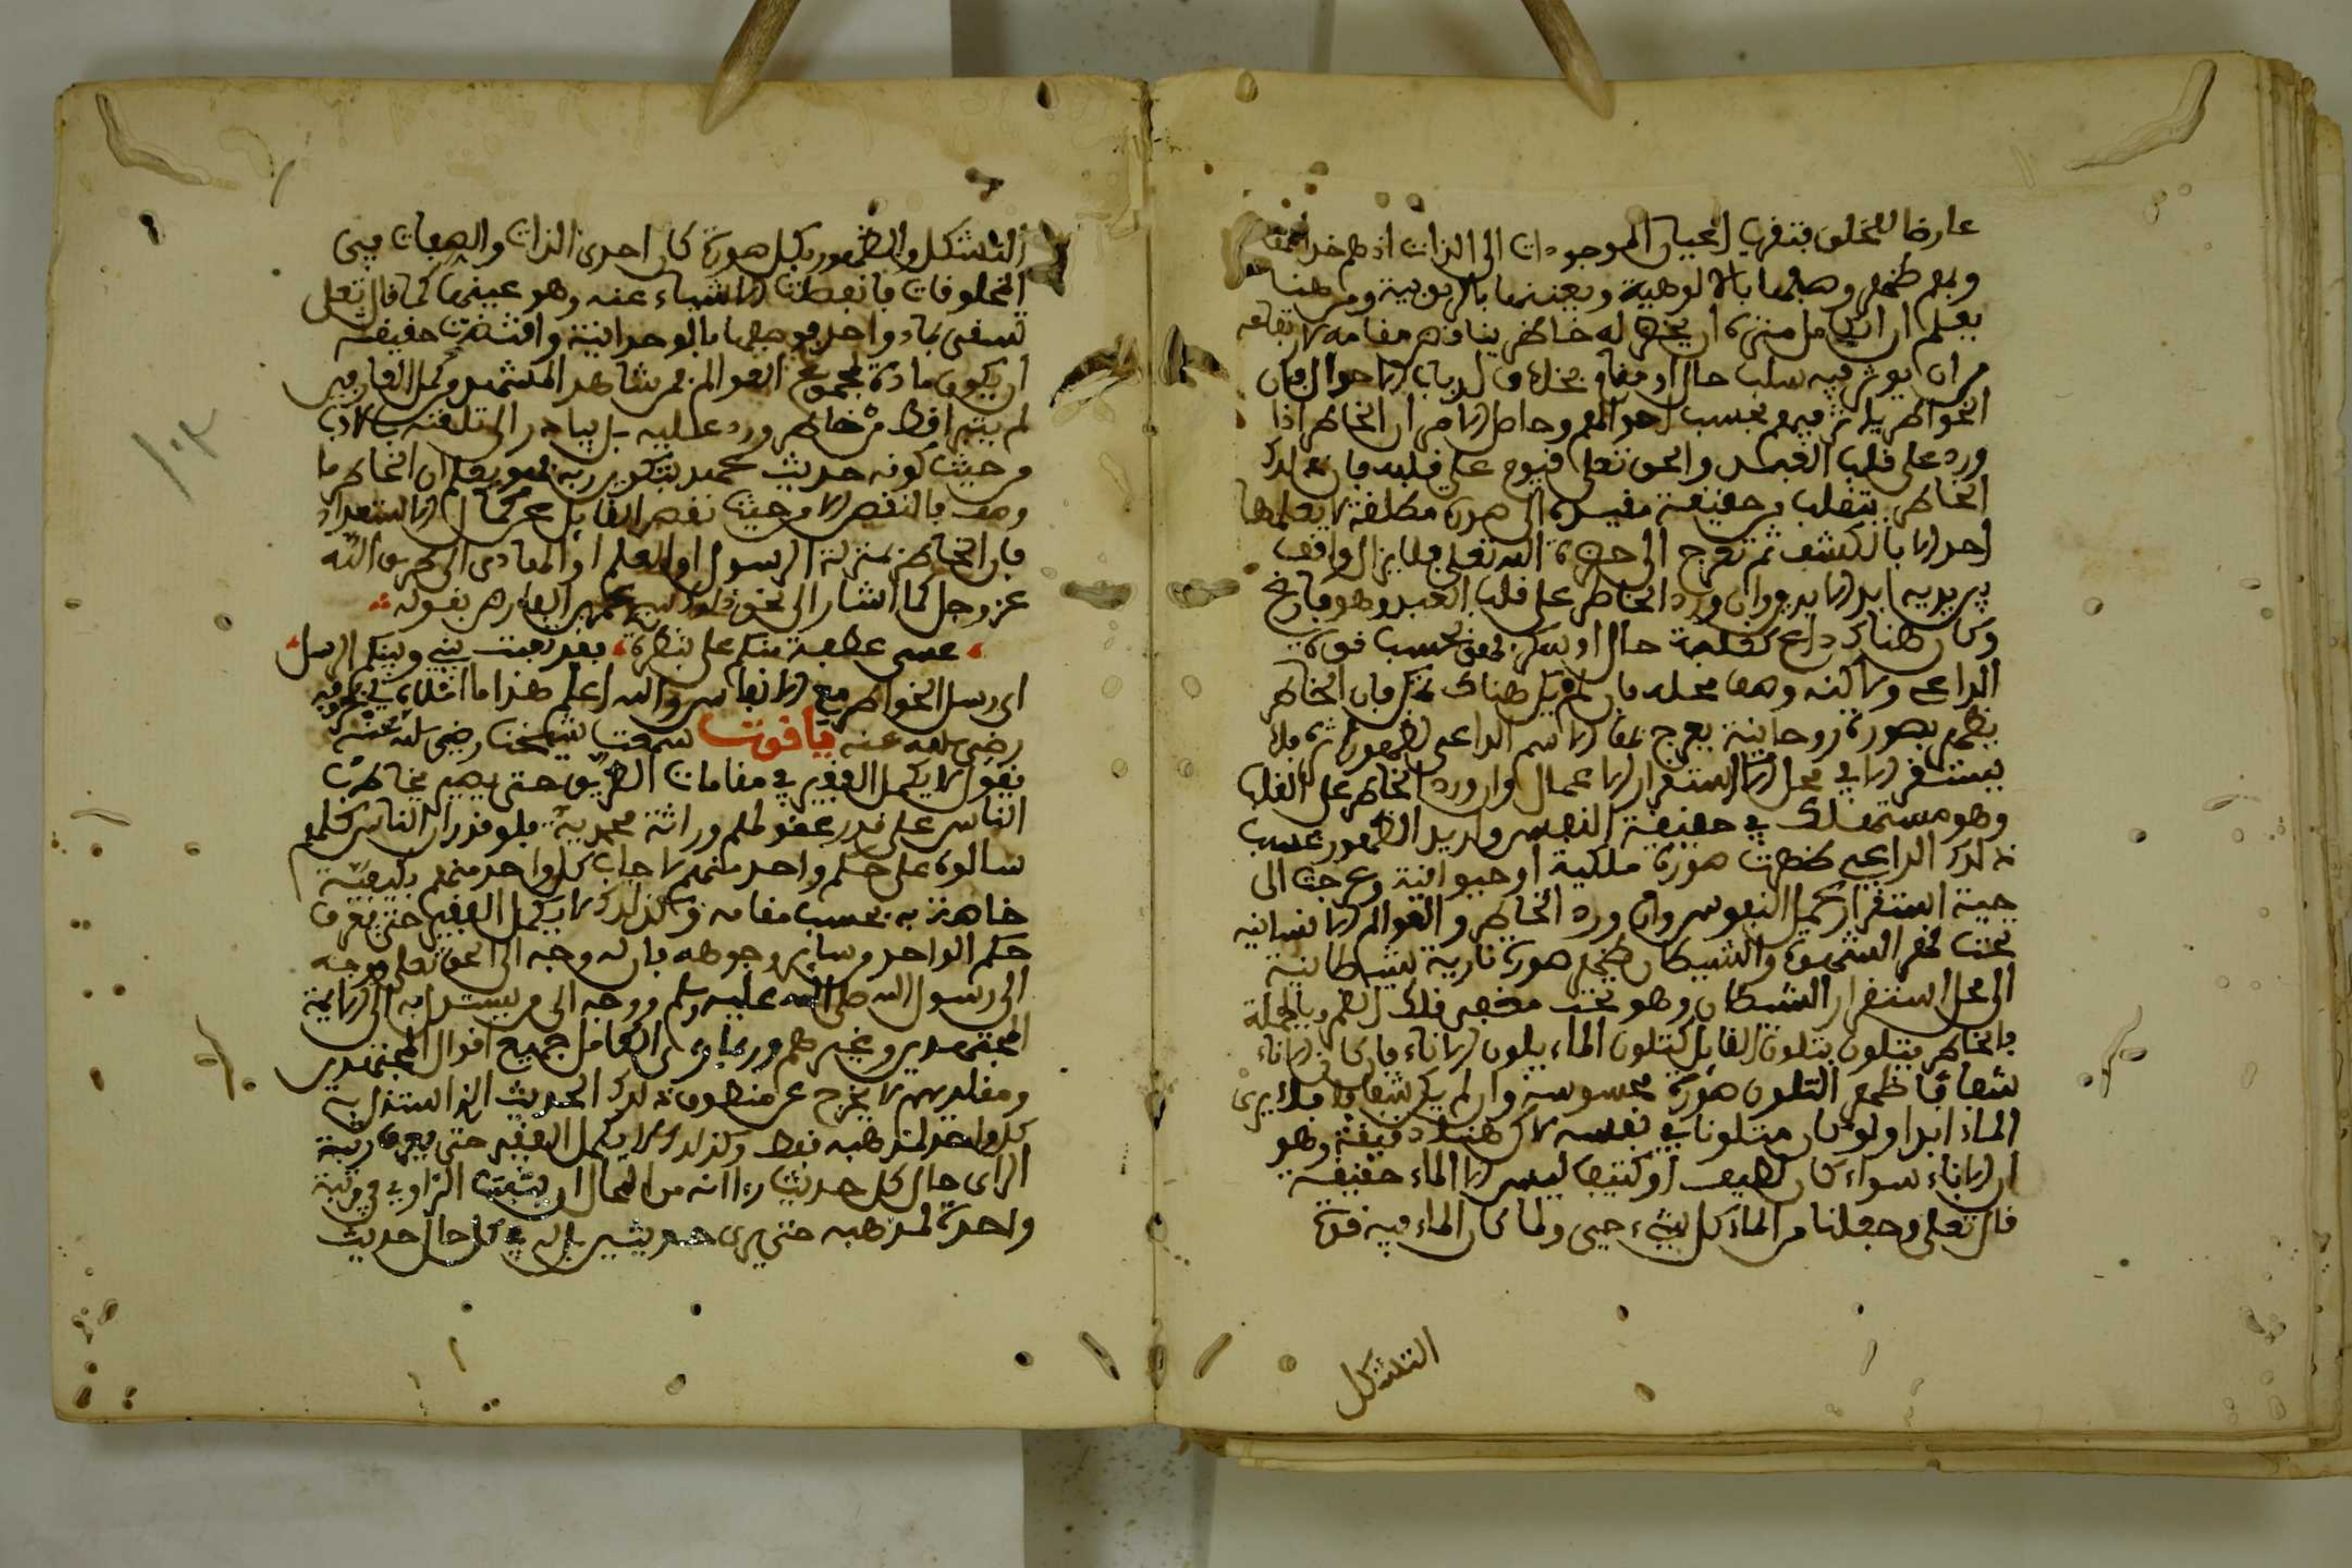 عارضا للخلق بتنزيه اعيان الموجودات الى الذات اذ هم
وبهم ظهر وصفها بالالوهية وبعينها بالربوبية ومن هنا
يعلم ان الكامل متى ان يخطر له خاطر يناقض مقامه لا
من ان يوثر فيه سلب حال او مقام بخلاف ارباب الاحوال فان
الخواطر يوثر فيهم بحسب احوالهم وحاصل الامر ان الخاطر اذا
ورد على قلب العبد والحق تعلى قيوم على قلبه فان ذلك
الخاطر يتقلب من حقيقة مقيدة الى صورة مطلقة لا يعلمها
احد الا بالكشف ثم تعرج الى حضرة الله تعلى فلا يزال واقف
بين يديه ابد الابدين وان ورد الخاطر على قلب العبد وهو فارغ
وكان هناك داع كغلبة حال او سكر فهو بحسب قوة
الداعي وتمكينه وصفا محله فان لم يكن هناك سكر فان الخاطر
يظهر بصورة روحانية يعرج بها الاسم الداعي لظهوره فلا
يستقر الا في محل الاستقرار الاعمال وان ورد الخاطر على القلب
وهو مستهلك في حقيقة النفس واريد الظهور عسب
ذلك الداعي ظهرت صورة ملكية او حيوانية وعرجت الى
حيث استقرار محل النفوس وان ورد الخاطر والعوالم الانسانية
تحت قهر الشهوة والشيطان ظهر صورة نارية شيطانية
الى محل استقرار الشيطان وهو تحت مقعر فلك القمر وبالجملة
فالخاطر يتلون بتلون القابل كتلون الماء بلون الاناء فان كان الاناء
شفافا ظهر التلون صورة محسوسة وان لم يكن شفافا فلا يرى
الماء ابدا ولو كان متلونا في نفسه لاكن هنا دقيقة وهو
ان الاناء سواء كان لطيف او كثيفا ليس الا الماء حقيقة
قال تعلى وجعلنا من الماء كل شيء حيى ولما كان الماء فيه قوة
التشكل
التشكل والظهور بكل صورة كان احدى الذات والصفات فيى
المخلوقات فانفعلت الاشياء عنه وهو عينها كما قال تعلى
تسقى بماء واحد فوصفها بالوحدانية واقتضت حقيقته
ان يكون مادة لمجموع العوالم فمن شاهد المشهد وكمل العارفين
لم ينبر قط من خاطر ورد عليه بل يبادر الى تلقته بالادب
من حيث كونه حديث عهد بتكوين ربه فهو يعلم ان الخاطر ما
وصف بالنقص الا من حيث نقص القابل عن كمال الاستعداد
فان الخاطر بمنزلة الرسول او المعلم او الهادى الى طريق الله
عز وجل كما اشار الى نحو ذلك سيدى عمر بن الفارض بقوله
عسى عطفة منكم على بنظرة فقد تعبت بيني وبينكم الرسل
اى رسل الخواطر مع الانفاس والله اعلم هذا ما املاه لي بحروفه
رضي الله عنه ياقوت سمعت شيخنا رضي الله عنه
يقول لا يكمل الفقير في مقامات الطريق حتى يصير يخاطب
الناس على قدر عقولهم وراثة محمدية فلو قدر ان الناس كلهم
سالوه على حكم واحد منهم لاجاب كل واحد منهم بكيفية
خاصة به بحسب مقامه وكذلك لا يكمل الفقير حتى يعرف
حكم الواحد وساير وجوهه فان له وجه الى الحق تعلى ووجه
الى رسول الله صلى الله عليه وسلم ووجه الى من يستدل به الى الايمة
المجتهدين وغيرهم وربما راى الكامل جميع اقوال المجتهدين
ومقلديهم لا يخرج عن منطوق ذلك الحديث الذى استدل به
كل واحد لمذهبه فقط وكذلك لا يكمل الفقير حتى يعرف رتبة
الراى حال كل حديث رءاه انه من المحال ان يثبت الراوي في رتبة
واحدة لمذهبه حتى يرى حديثين بل له في كل حال حديث